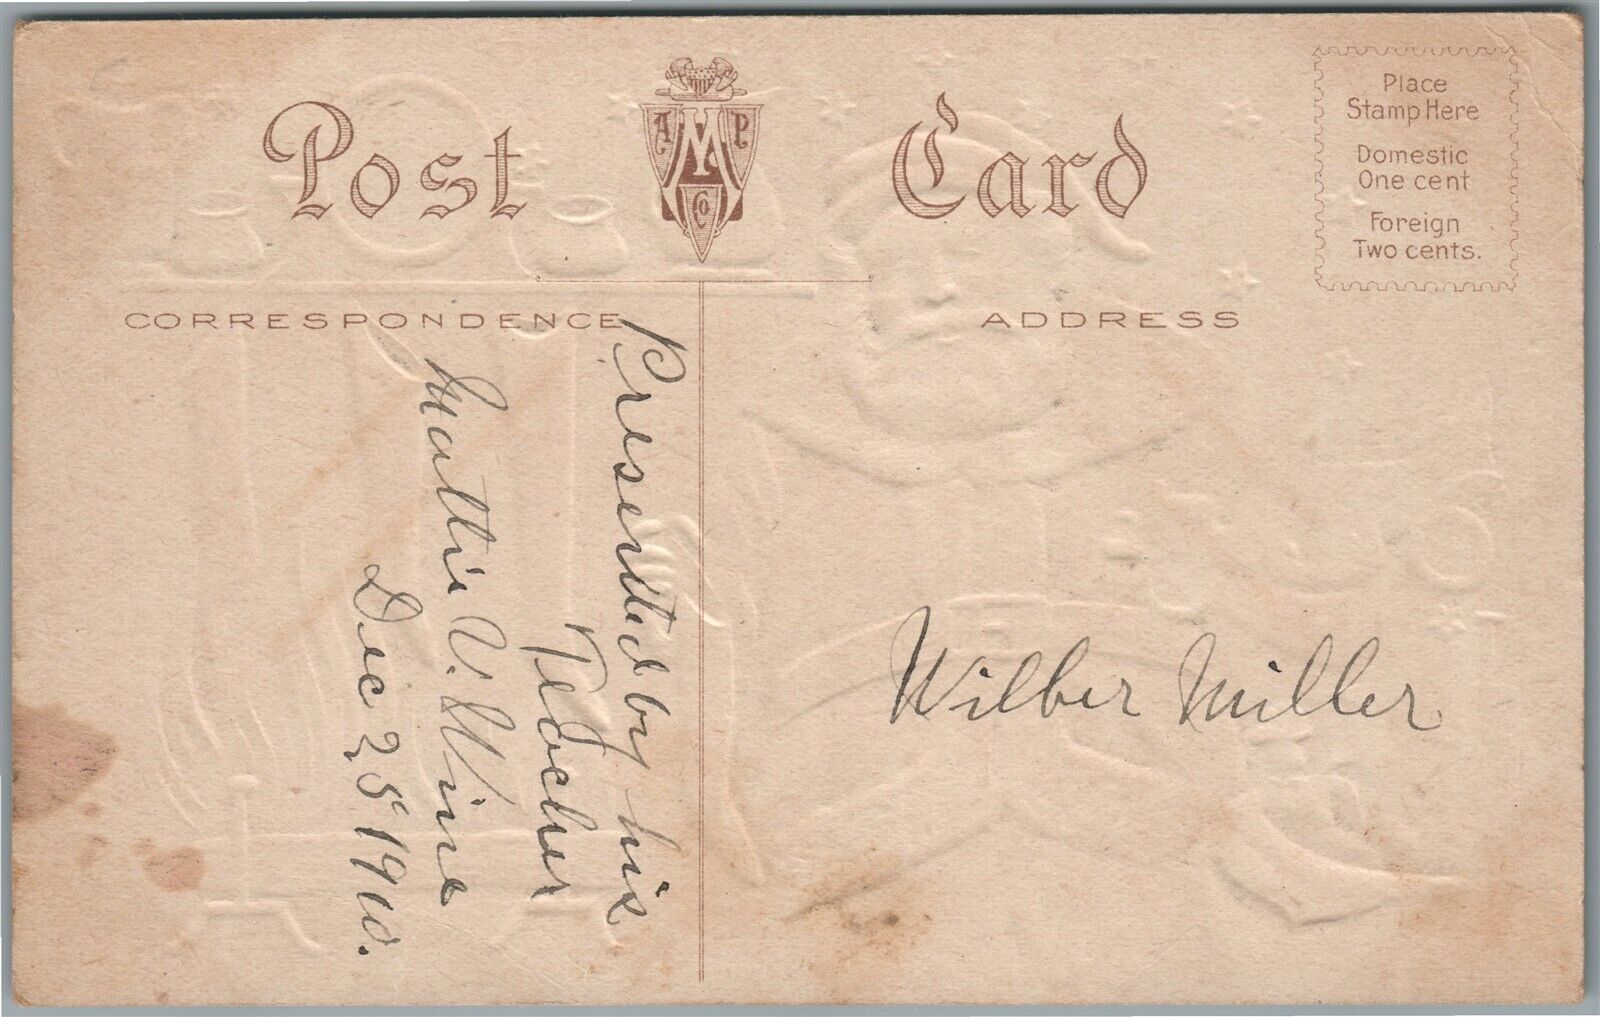 Post Card
A M P Co
Place
Stamp Here
Domestic
One cent
Foreign
Two cents.
CORRESPONDENCE
ADDRESS
Presented by his
Teacher
Mattie V. Wine
Dec 25 1910.
Wilber Miller